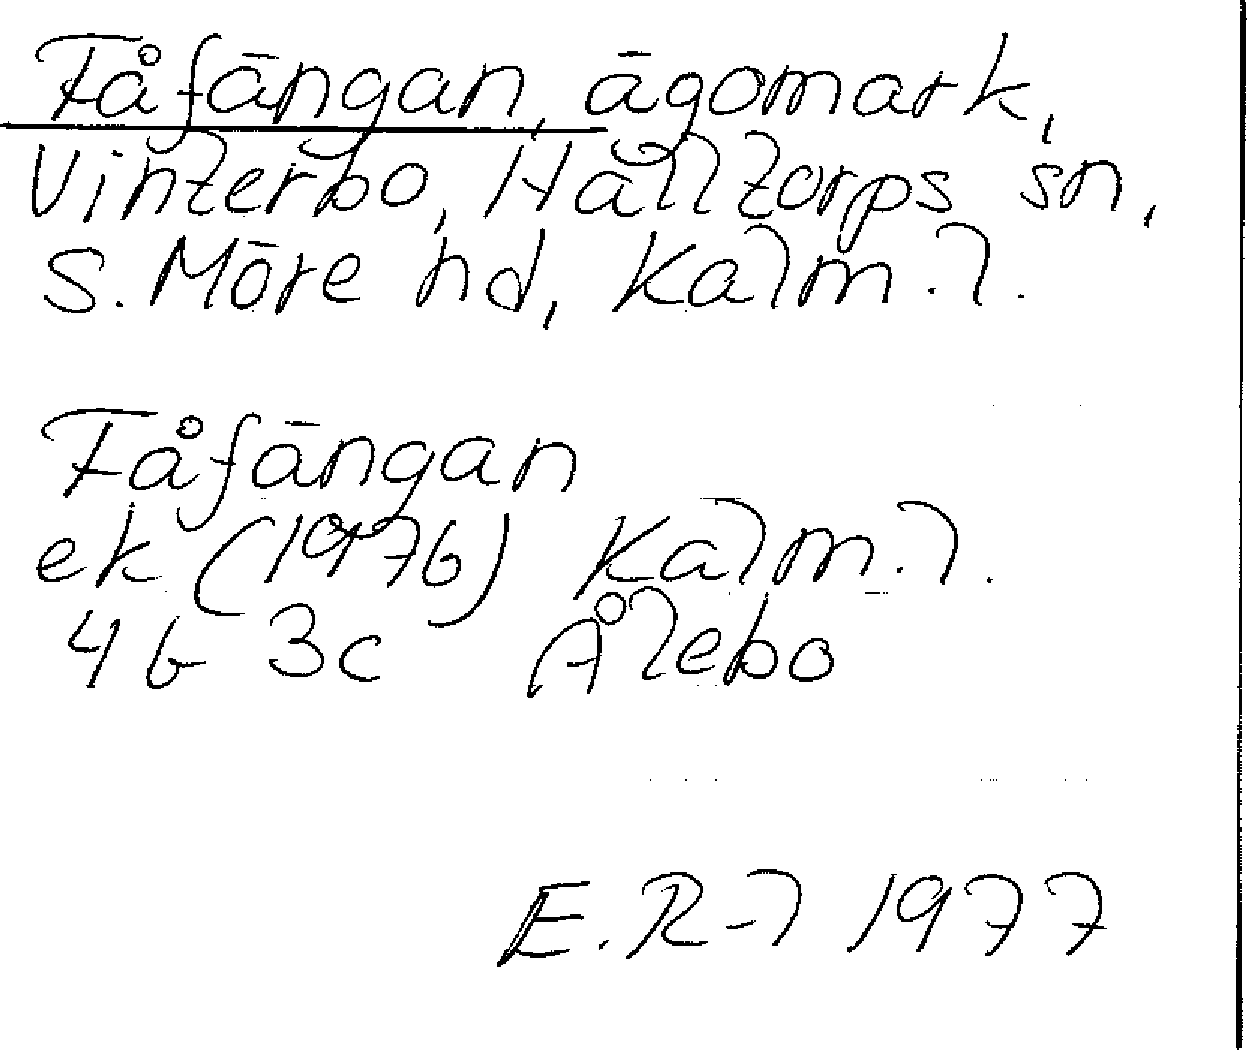 Fåfängan, ägomark,
Vinterbo, Halltorps sn,
S. Möre hd, Kalm. l.
Fåfängan
ek (1976) Kalm. l.
4G 3c Ålebo
E. R-l 1977